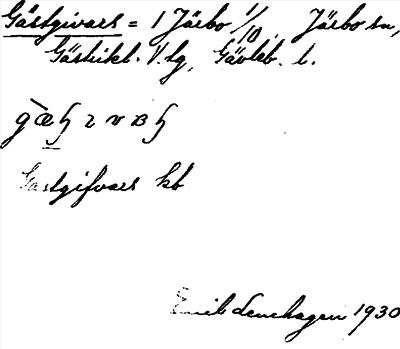 Gästgivars = 1 Järbo 1/10. Järbo sn,
Gästrikl. V. tg, Gävleb. l.
Gästgifvars kb
Emil Lenehagen 1930